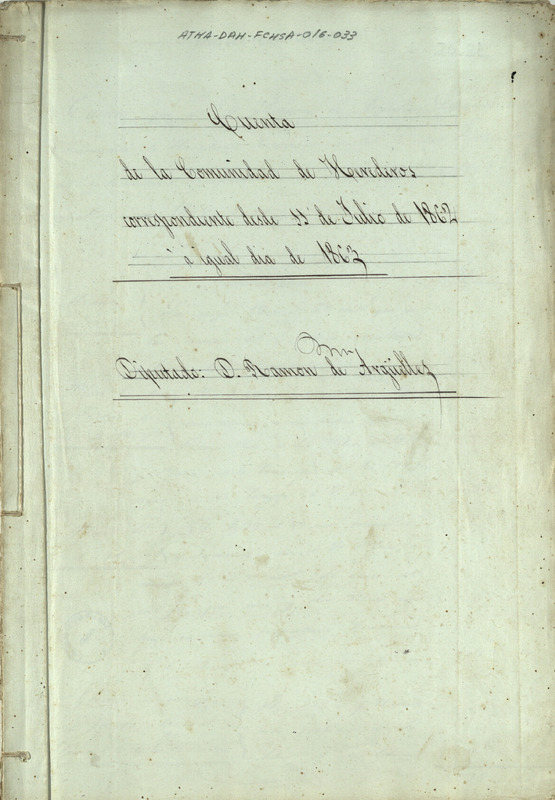 ATHA-DAH-FCHSA-016-033
Cuenta
de la Comunidad de Herederos
correspondiente desde 13 de Julio de 1862
à igual dia de 1863
Diputado: D. Ramon de Argüelles